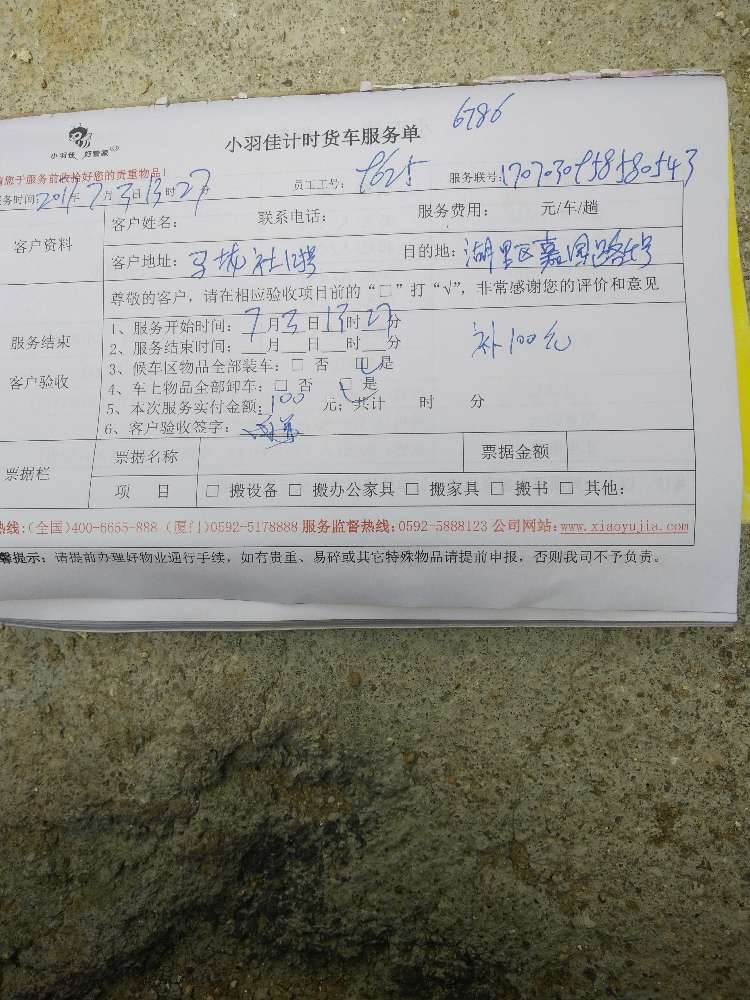 6786
小羽佳计时货车服务单
小羽佳 好管家
请您于服务前收拾好您的贵重物品!
员工工号: 9625 服务联号: 1707030958580543
务时间: 2017年7月3日13时27分
客户资料
客户姓名: 联系电话: 服务费用: 元/车/趟
客户地址: 社 目的地: 湖里区嘉园路 号
服务结束
客户验收
尊敬的客户,请在相应验收项目前的“□”打“√”,非常感谢您的评价和意见
1、服务开始时间: 7月3日13时27分
2、服务结束时间: 月 日 时 分
补100元
3、候车区物品全部装车: □ 否 □ 是
4、车上物品全部卸车: □ 否 □ 是
5、本次服务实付金额: 100 元; 共计 时 分
6、客户验收签字:
票据栏
票据名称 票据金额
项 目 □ 搬设备 □ 搬办公家具 □ 搬家具 □ 搬书 □ 其他:
热线:(全国)400-6655-888 (厦门)0592-5178888 服务监督热线:0592-5888123 公司网站:www.xiaoyujia.com
馨提示: 请提前办理好物业通行手续,如有贵重、易碎或其它特殊物品请提前申报,否则我司不予负责。